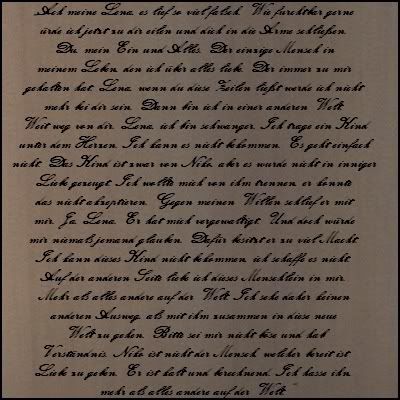 Ach meine Lena, es lief so viel falsch. Wie furchtbar gerne
würde ich jetzt zu dir eilen und dich in die Arme schließen.
Du, mein Ein und Alles. Der einzige Mensch in
meinem Leben, den ich über alles liebe. Der immer zu mir
gehalten hat. Lena, wenn du diese Zeilen ließt werde ich nicht
mehr bei dir sein. Dann bin ich in einer anderen Welt.
Weit weg von dir. Lena, ich bin schwanger. Ich trage ein Kind
unter dem Herzen. Ich kann es nicht bekommen. Es geht einfach
nicht. Das Kind ist zwar von Nike, aber es wurde nicht in inniger
Liebe gezeugt. Ich wollte mich von ihm trennen, er konnte
das nicht akzeptieren. Gegen meinen Willen schlief er mit
mir. Ja, Lena. Er hat mich vergewaltigt. Und doch würde
mir niemals jemand glauben. Dafür besitzt er zu viel Macht.
Ich kann dieses Kind nicht bekommen, ich schaffe es nicht.
Auf der anderen Seite liebe ich dieses Menschlein in mir.
Mehr als alles andere auf der Welt. Ich sehe daher keinen
anderen Ausweg, als mit ihm zusammen in diese neue
Welt zu gehen. Bitte sei mir nicht böse und hab
Verständnis. Nike ist nicht der Mensch, welcher bereit ist
Liebe zu geben. Er ist kalt und berechnend. Ich hasse ihn,
mehr als alles andere auf der Welt."